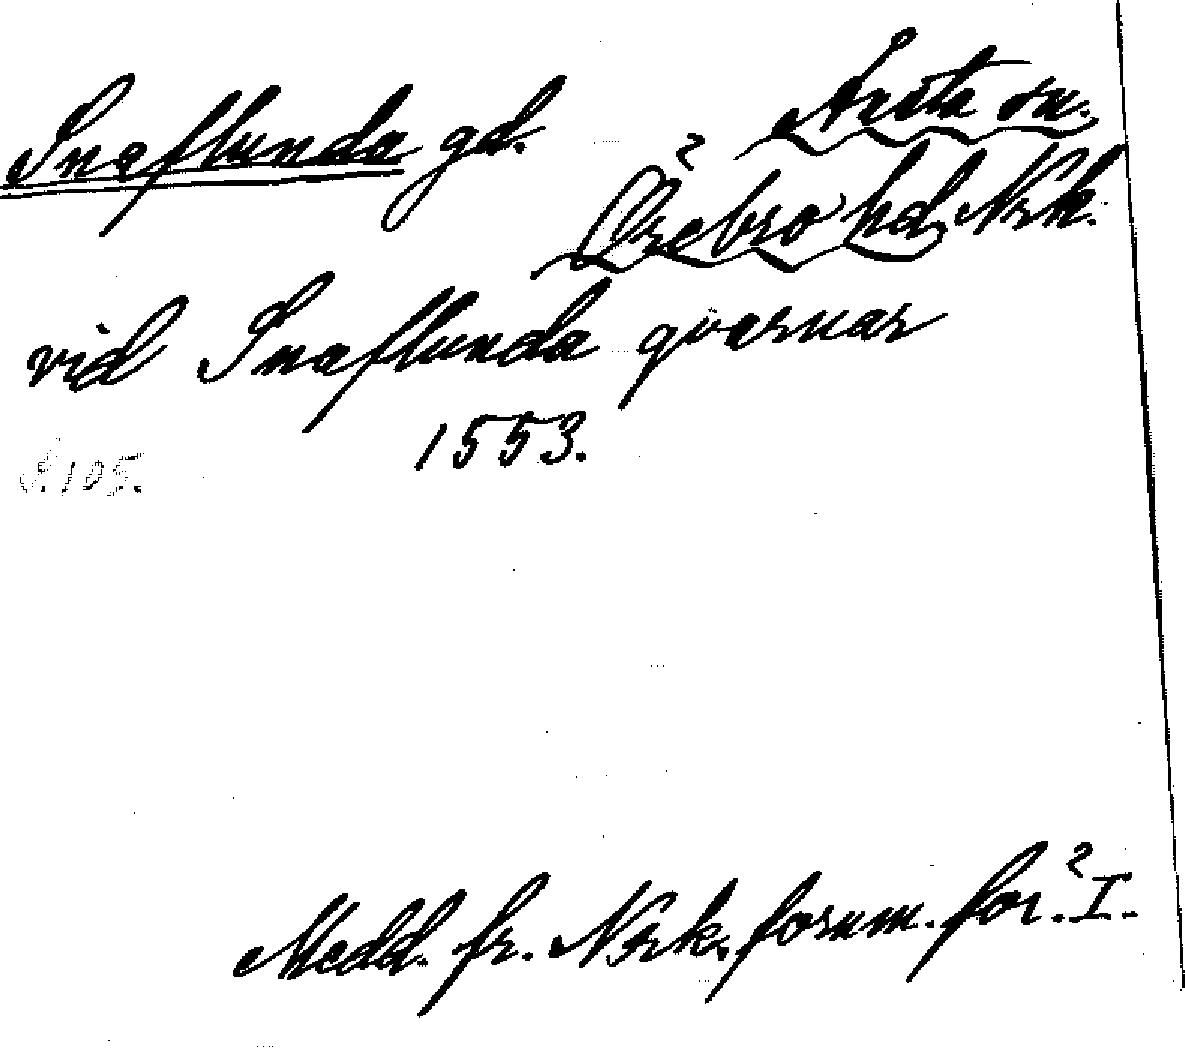 Snaflunda gd. Axeta sn.
Örebro hd, Nrk.
vid Snaflunda qvarnar
1553.
S. 105.
Medd. fr. Nrk. fornm. för. I.